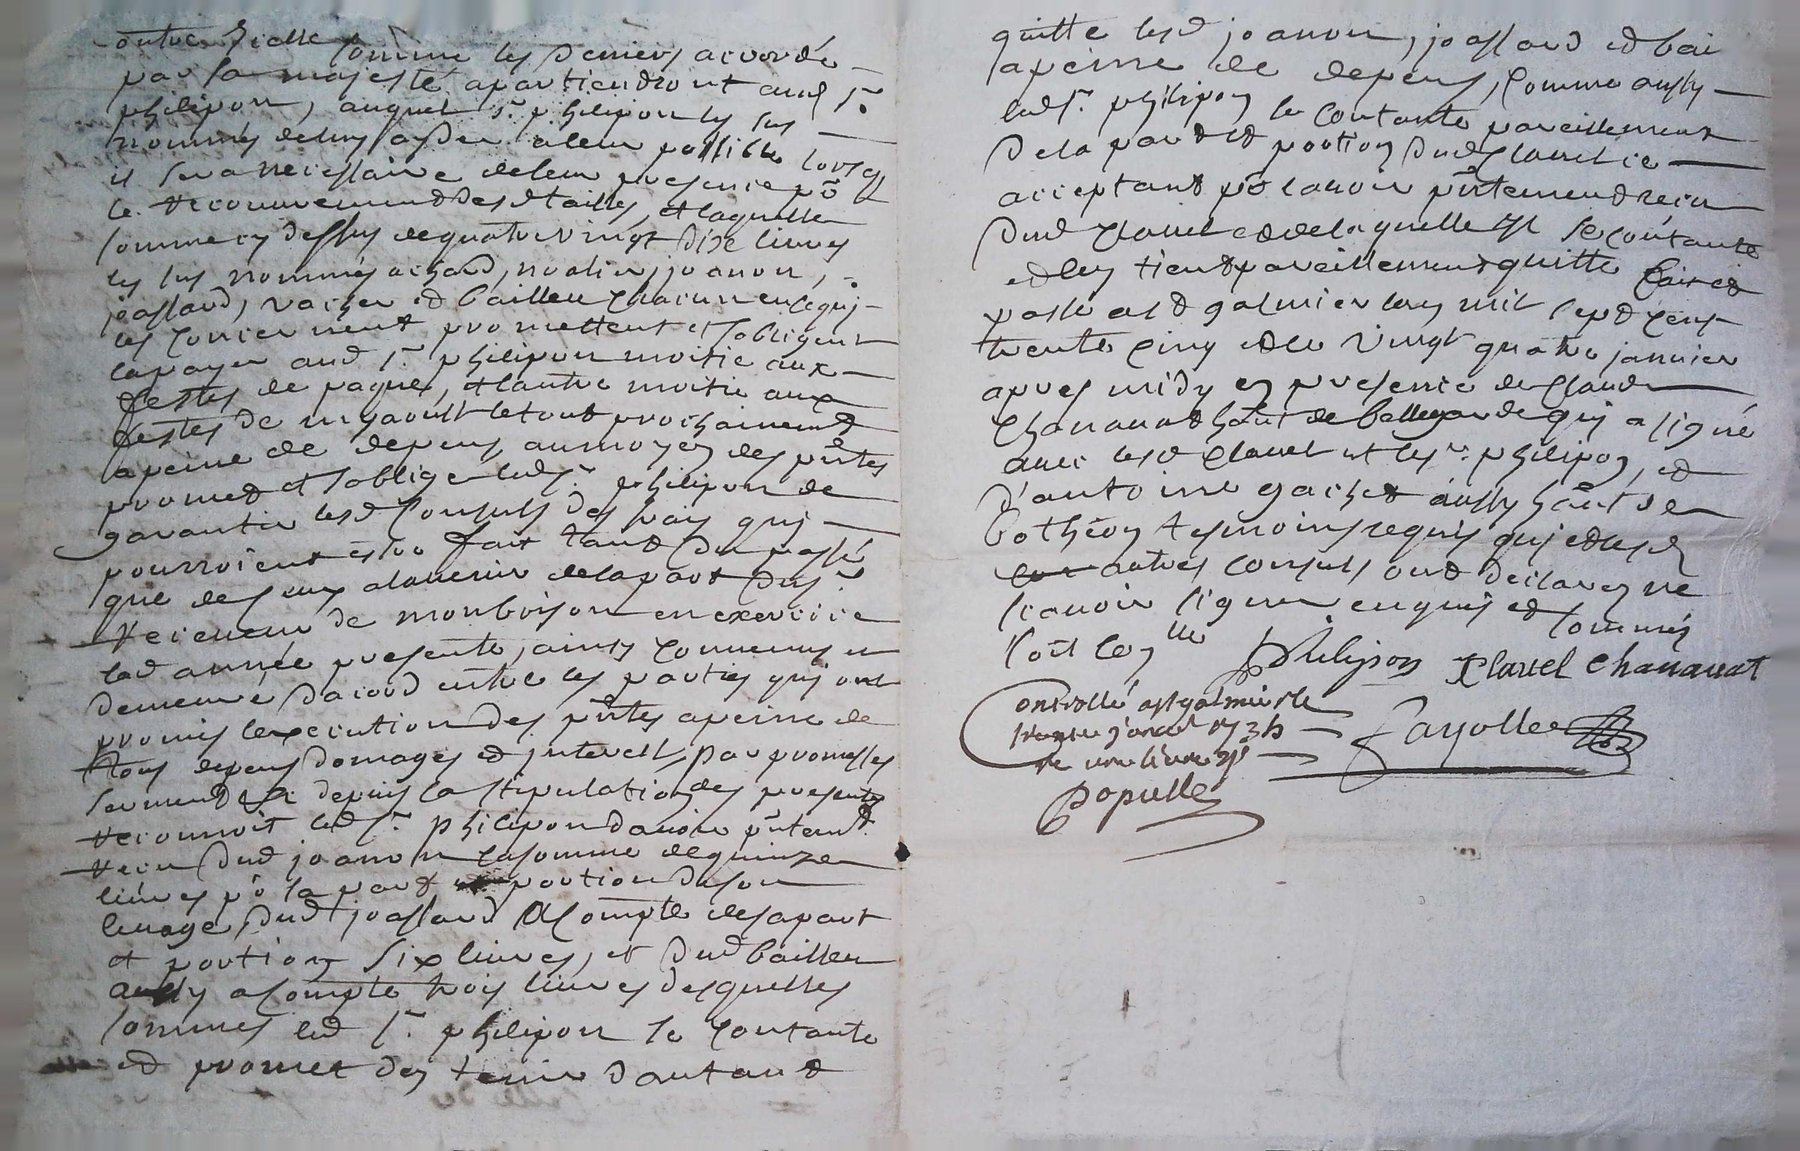 outre icelle somme les deniers accordé
par sa majesté apartiendront aud sr
philipon, auquel sr philipon les sus
nommés de luy ayder a leur possible lorsq
il sera necessaire de leur presence po
le recouvrement desd tailles, et laquelle
somme cy dessus de quatre vingt dixe livres
les sus nommés achard, noalier, joanon,
joassard, vacher et bailleu chacun en ce qui
les concernent promettent et sobligent
la payer aud sr philipon moitié aux
festes de paques, et lautre moitie aux
festes de my aoust le tout prochainemt
a peine de depens au moyen des pntes
promet et soblige led sr philipon de
garantir lesd consuls des frais qui
pourroient estre fait tant du passé
que de ceux a lavenir de la part du sr
receveur de monbrison en exercice
lad année presente, ainsy convenu et
demeuré dacord entre les parties qui ont
promis lexecution des pntes a peine de
tous depens domages et interest, par promesses
serment et depuis la stipulation des presentes
reconnoit led sr philipon davoir pntemt
receu dud joanon la somme de quinze
livres po sa part et portion de son
, dud joassard a compte de sa part
et portion six livres, et dud bailleu
aussy a compte trois livres desquelles
sommes led sr philipon se contante
et promet den tenir dautant
quitte lesd joanon, joassard et bai
a peine de depens, comme aussy
led sr philipon se contante pareillement
de la part et portion dud clavel ce
acceptant po lavoir pntement receu
dud clavel et de laquelle il se contante
et len tient pareillement quitte fait et
passé a st galmier lan mil sept cent
trente cinq et le vingt quatre janvier
apres midy en presence de claude
chanavat hant de bellegarde qui a signé
avec lesd clavel et le sr philipon, et
d'antoine gachet aussy hant de
botheon tesmoins requis qui et lesd
autres consuls ont declarez ne
scavoir signer enquis et sommés
soit
Philipon Clavel Chanavat
Controllé a st galmier le
janvr 1735
re une livre
Fayolle
Populle